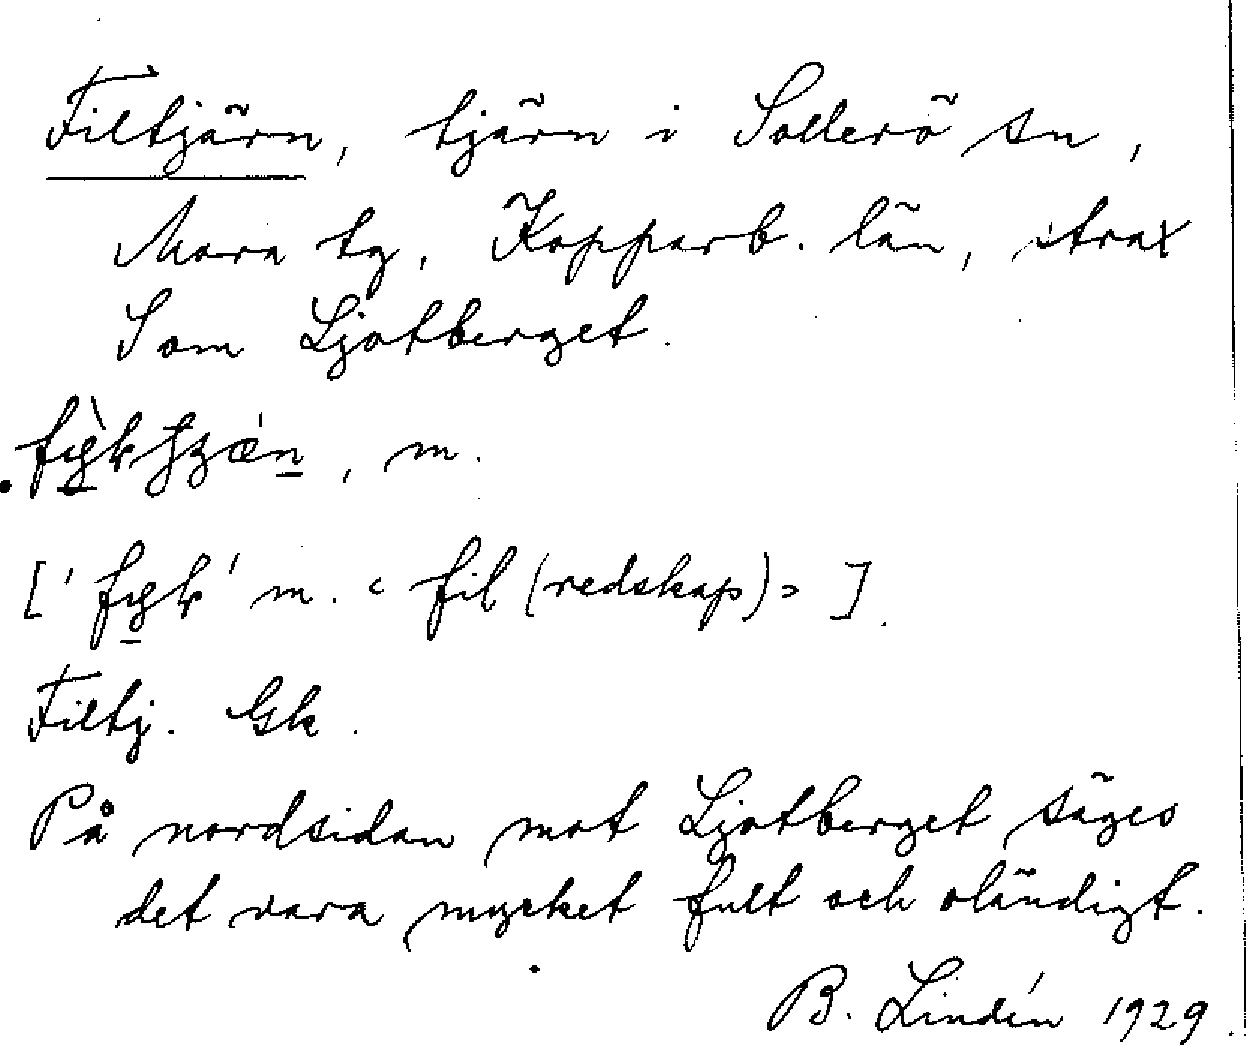 Filtjärn, tjärn i Sollerö sn,
Mora tg, Kopparb. län, strax
S om Ljotberget.
, m.
[' ' m. < fil (redskap) > ].
Filtj. Gk.
På nordsidan mot Ljotberget säges
det vara mycket fult och oländigt.
B. Lindén 1929.